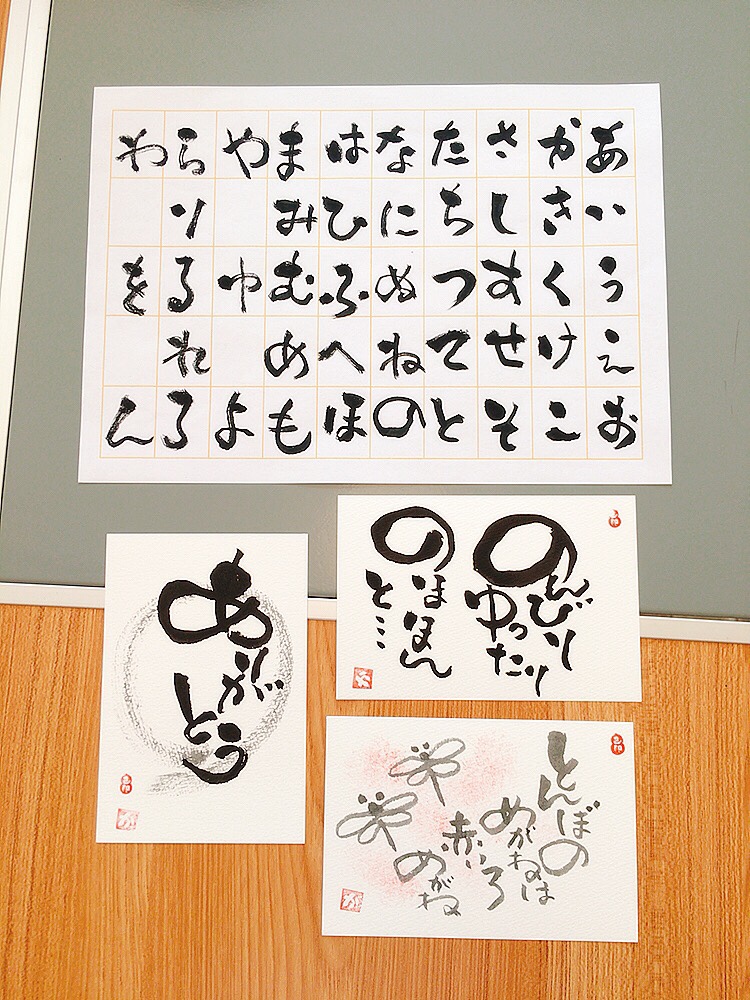 あいうえお
かきくけこ
さしすせそ
たちつてと
なにぬねの
はひふへほ
まみむめも
やゆよ
らりるれろ
わをん
ありがとう
のんびり
ゆったり
のほほん
と…
とんぼの
めがねは
赤いろ
めがね